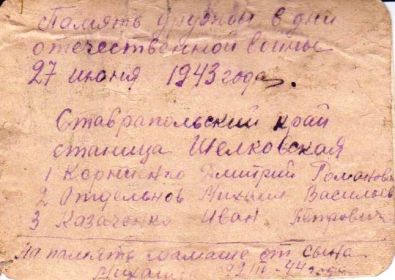 Память друзьям в дни
отечественной войны
27 июня 1943 года.
Ставрапольский край
станица Шелковская
1 Корниенко Дмитрий Романов
2 Отдельнов Михаил Васильев
3 Казаченко Иван Петрович
На память мамаше от сына
Михаила 44 года